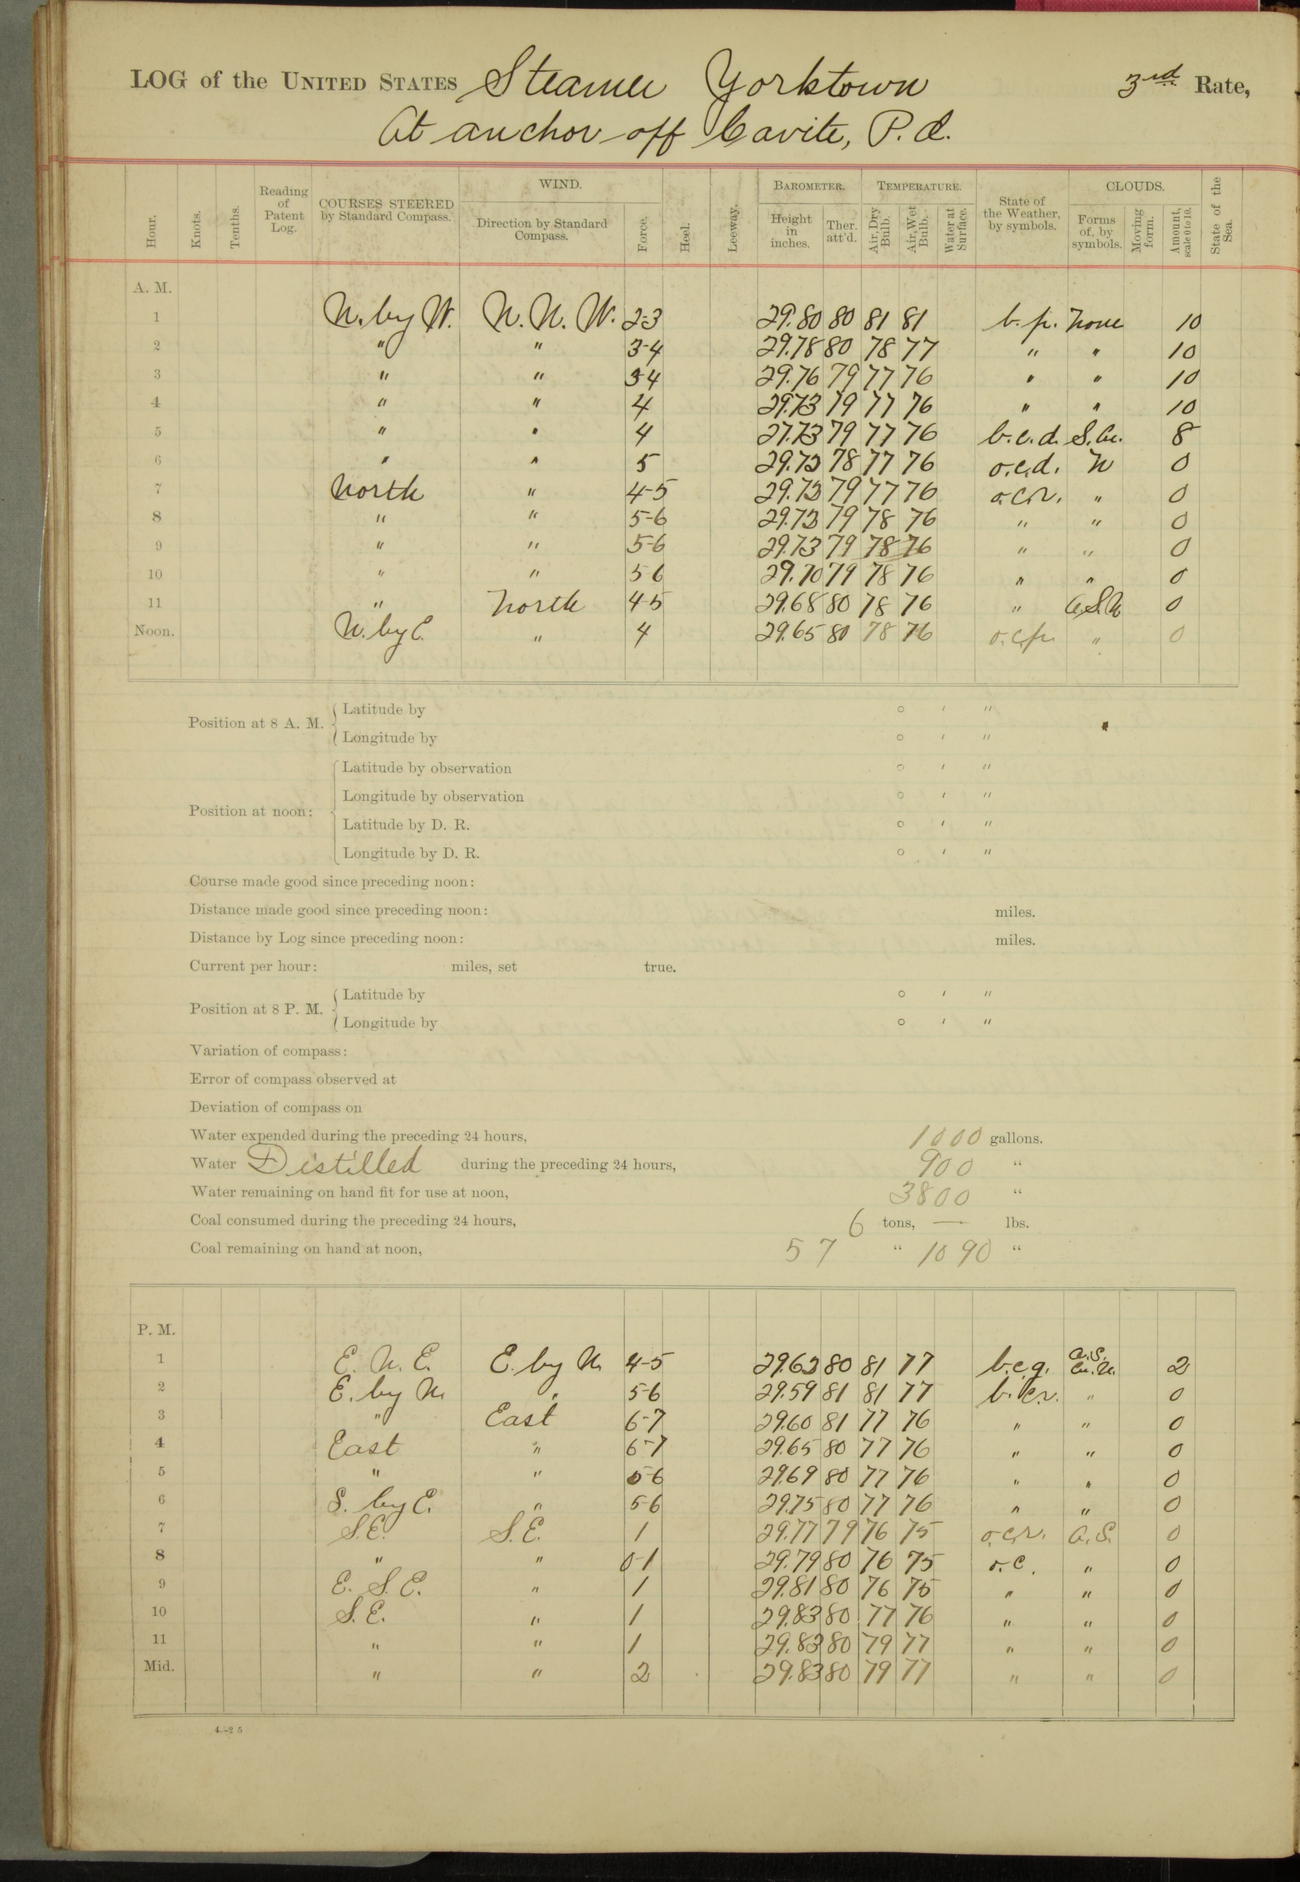 LOG of the UNITED STATES Steamer Yorktown 3rd Rate,
At anchor off Cavite, P.I.
Hour. Knots. Tenths. Reading of Patent Log. COURSES STEERED by Standard Compass. WIND. Direction by Standard Compass. Force. Heel. Leeway. BAROMETER. Height in inches. Ther. att'd. TEMPERATURE. Air, Dry Bulb. Air, Wet Bulb. Water at Surface. State of the Weather, by symbols. CLOUDS. Forms of, by symbols. Moving form. Amount, scale 0 to 10. State of the Sea.
A. M.
1 N. by W. N. N. W. 2-3 29.80 80 81 81 b.p. none 10
2 " " 3-4 29.78 80 78 77 " " 10
3 " " 3-4 29.76 79 77 76 " " 10
4 " " 4 29.73 79 77 76 " " 10
5 " " 4 27.73 79 77 76 b.c.d. S.Cu. 8
6 " " 5 29.73 78 77 76 o.c.d. N 0
7 North " 4-5 29.73 79 77 76 o.c.r. " 0
8 " " 5-6 29.73 79 78 76 " " 0
9 " " 5-6 29.73 79 78 76 " " 0
10 " " 5-6 29.70 79 78 76 " " 0
11 " North 4-5 29.68 80 78 76 " a.S.N 0
Noon. N. by E. " 4 29.65 80 78 76 o.c.p. " 0
Position at 8 A. M. Latitude by ° ' "
Longitude by ° ' "
Position at noon: Latitude by observation ° ' "
Longitude by observation ° ' "
Latitude by D. R. ° ' "
Longitude by D. R. ° ' "
Course made good since preceding noon:
Distance made good since preceding noon: miles.
Distance by Log since preceding noon: miles.
Current per hour: miles, set true.
Position at 8 P. M. Latitude by ° ' "
Longitude by ° ' "
Variation of compass:
Error of compass observed at
Deviation of compass on
Water expended during the preceding 24 hours, 1000 gallons.
Water Distilled during the preceding 24 hours, 900 "
Water remaining on hand fit for use at noon, 3800 "
Coal consumed during the preceding 24 hours, 6 tons, — lbs.
Coal remaining on hand at noon, 57 " 1090 "
P. M.
1 E. N. E. E. by N. 4-5 29.63 80 81 77 b.c.q. a.S. Cu.N. 2
2 E. by N. " 5-6 29.59 81 81 77 b.c.r. " 0
3 " East 6-7 29.60 81 77 76 " " 0
4 East " 6-7 29.65 80 77 76 " " 0
5 " " 5-6 29.69 80 77 76 " " 0
6 S. by E. " 5-6 29.75 80 77 76 " " 0
7 S.E. S.E. 1 29.77 79 76 75 o.c.r. a.S. 0
8 " " 0-1 29.79 80 76 75 o.c. " 0
9 E. S. E. " 1 29.81 80 76 75 " " 0
10 S.E. " 1 29.83 80 77 76 " " 0
11 " " 1 29.83 80 79 77 " " 0
Mid. " " 2 29.83 80 79 77 " " 0
4-25